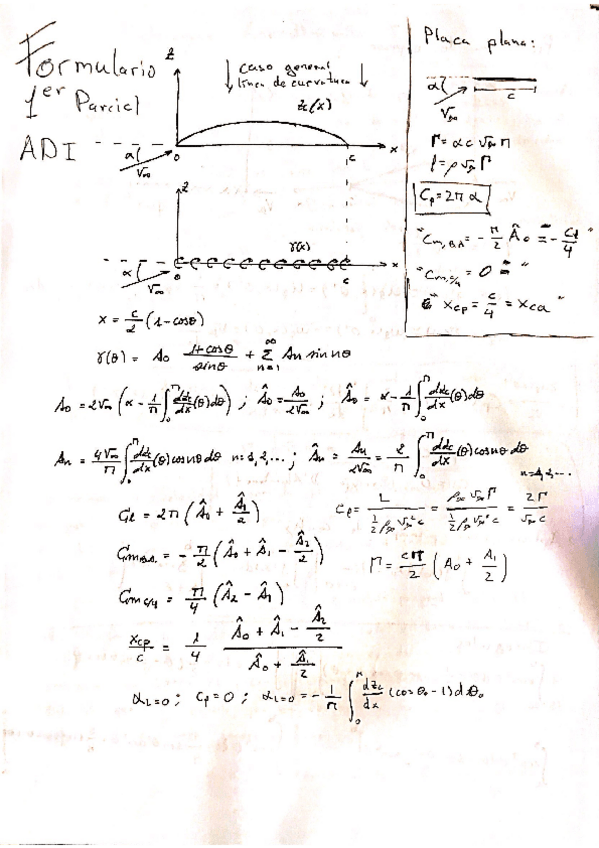 Formulario
1er Parcial
ADI
z
caso general
línea de curvatura
zc(x)
α
V∞
0
c
x
z
γ(x)
α
V∞
0
c
x
Placa plana:
α
V∞
c
Γ = α c V∞ π
l = ρ V∞ Γ
Cl = 2π α
"Cm,B.A = - π/2 Â0 = - Cl/4 "
"Cm,c/4 = 0 "
" xcp = c/4 = xca "
x = c/2 (1-cosθ)
γ(θ) = A0 (1+cosθ)/sinθ + Σ(n=1, ∞) An sin nθ
A0 = 2V∞ (α - 1/π ∫0^π dzc/dx (θ) dθ) ; Â0 = A0/2V∞ ; Â0 = α - 1/π ∫0^π dzc/dx (θ) dθ
An = 4V∞/π ∫0^π dzc/dx (θ) cos nθ dθ n=1,2,... ; Ân = An/2V∞ = 2/π ∫0^π dzc/dx (θ) cos nθ dθ n=1,2,...
Cl = 2π (Â0 + Â1/2)
Cl = L / (1/2 ρ∞ V∞² c) = ρ∞ V∞ Γ / (1/2 ρ∞ V∞² c) = 2Γ / V∞ c
CmB.A. = - π/2 (Â0 + Â1 - Â2/2)
Γ = cπ/2 (A0 + A1/2)
Cm c/4 = π/4 (Â2 - Â1)
xcp/c = 1/4 (Â0 + Â1 - Â2/2) / (Â0 + Â1/2)
αL=0 ; Cl = 0 ; αL=0 = - 1/π ∫0^π dzc/dx (cos θ0 - 1) dθ0